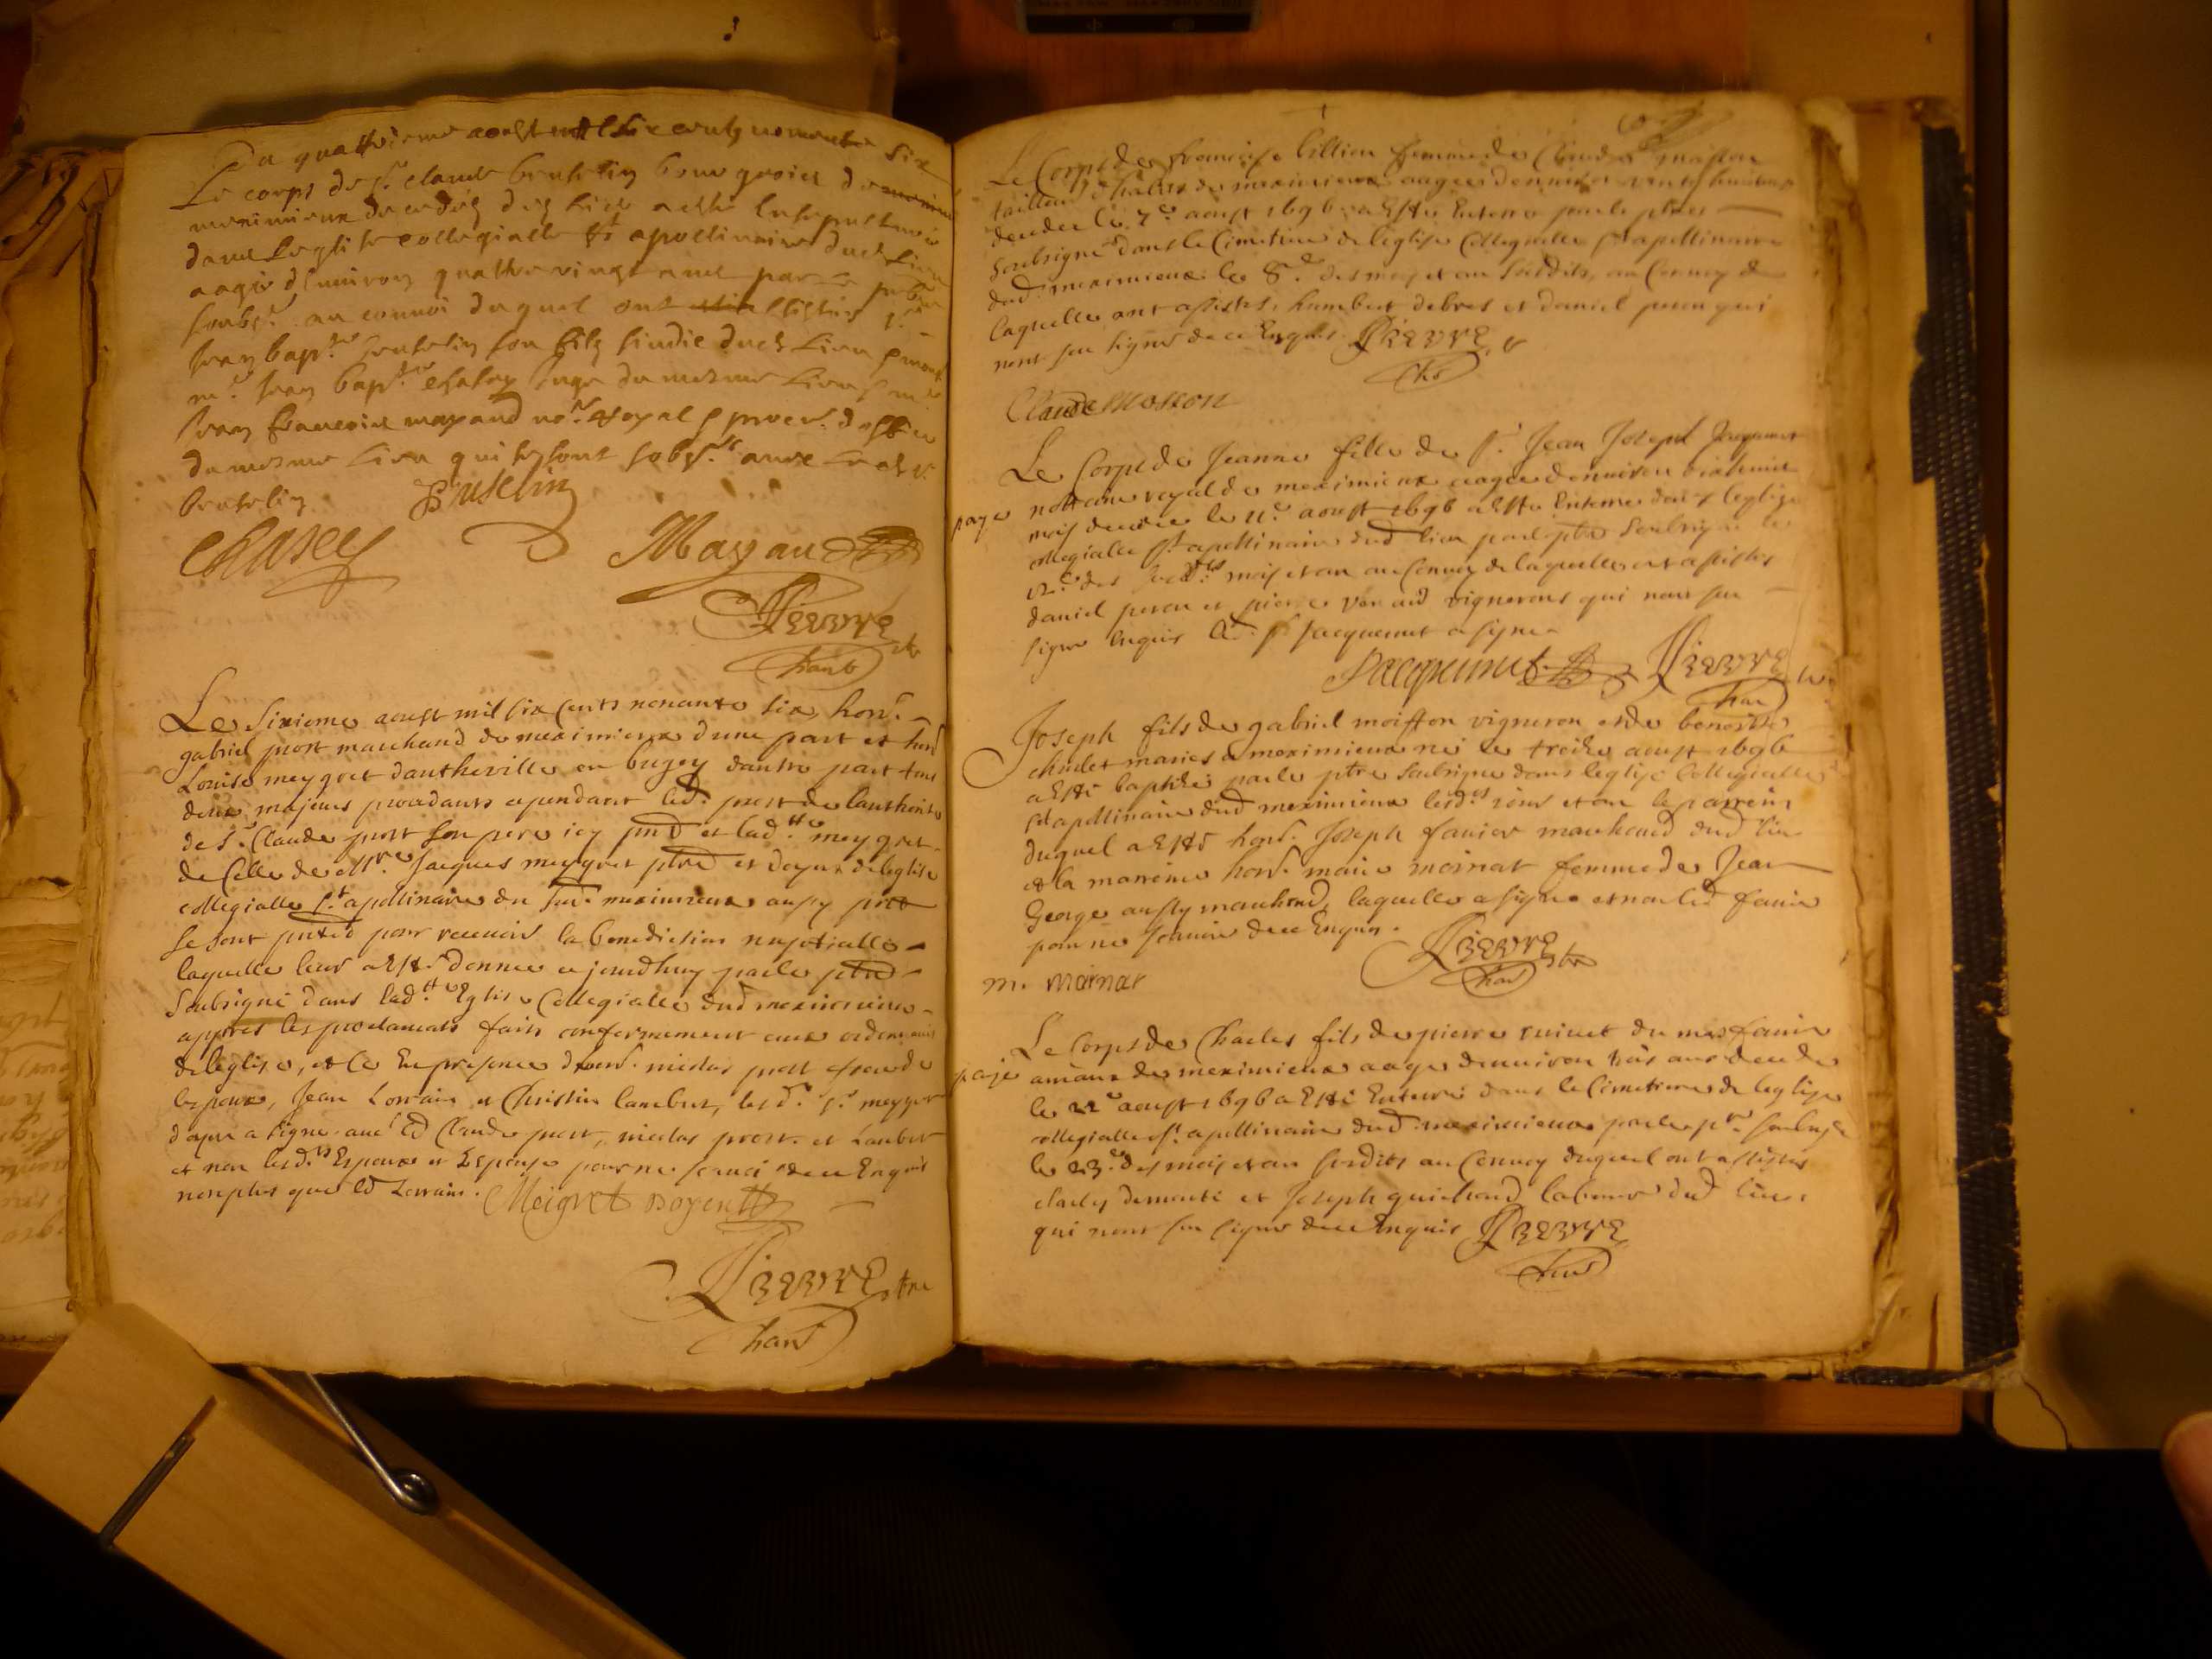 Du quattrieme aoust mil six cents nonante six
Le corps de sr. claude bruselin bourgeois de
meximieux decedé dez hier a esté
dans leglise collegialle st apollinaire dud. lieu
aagé denviron quattre vingt ans par le
soubs.é au convoi duquel ont assistés
Jean bap.te bruselin son filz sindic dud. lieu
m.e Jean bap.te chasey Juge du mesme lieu
Jean francois mayand no.re royal & procu. doffice
du mesme lieu qui se sont soubs.es avec led. sr.
bruselin
Bruselin
Chasey
Mayand
Lievre
chan
Le sixieme aoust mil six cents nonante six, hon.
gabriel prost marchand de meximieux dune part et hon.
Louise meygret dautheville en bugey dautre part tous
deux majeurs procedants cependant led. prost de lauthorité
de sr. Claude prost son pere icy pnt et lad.tte meygret
de Celle de Mre. Jacques meygret ptre et doyen de leglise
collegialle st apollinaire du sud. meximieux aussy pnt
se sont pntés pour recevoir la benediction nuptialle
laquelle leur a esté donnee ce jourdhuy par le ptre
soubsigné dans lad.tte Eglise Collegialle dud meximieux
appres les proclamats faits conformement aux ordonnances
de leglise, et ce En presence dhon. nicolas prost
lepoux, Jean Lorrain et Christin lambert, led. sr. meygret
doyen a signé avec led Claude prost, nicolas prost et Lambert
et non lesd.ts Espoux et Espouse pour ne scavoir de ce Enquis
nonplus que led Lorrain. Meigret Doyen
Lievre ptre
chan
Le Corps de francoise billion femme de Claude masson
tailleur dhabits de meximieux aagee denviron
decedee le 7e aoust 1696 a esté Enterré par le ptre
soubsigné dans le Cimetiere de leglise Collegialle st apollinaire
dud. meximieux le 8e des mois et an susdits, au Convoy de
laquelle ont assistés, humbert debres et daniel peron qui
nont sceu signer de ce Enquis. Lievre
chan
Claude Masson
Le Corps de Jeanne fille de sr. Jean Joseph Jacquemet
nottaire royal de meximieux aagee denviron dixhuit
paye
mois decedee le 11e aoust 1696 a esté Enterree dans leglise
collegialle st apollinaire dud lieu par le ptre soubsigné le
12e des susd.ts mois et an au Convoy de laquelle ont assistés
daniel peron et pierre venard vignerons qui nont sceu
signer enquis led. sr Jacquemet a signé
Jacquemet Lievre
chan
Joseph fils de gabriel moisson vigneron et de benoiste
chulet mariés a meximieux né le treize aoust 1696
a esté baptisé par le ptre soubsigné dans leglise Collegialle
st apollinaire dud meximieux lesd.ts jour et an le parrein
duquel a esté hon. Joseph favier marchand dud lieu
et la marreine hon. marie moinat femme de Jean
George aussy marchand, laquelle a signé et non led favier
pour ne scavoir de ce Enquis.
Lievre ptre
chan
m. moinat
Le Corps de Charles fils de pierre vuivet du mas favier
paye
aagé denviron trois ans decedé
le 22e aoust 1696 a esté Enterré dans le Cimetiere de leglise
collegialle st. apollinaire dud. meximieux par le ptre soubsigné
le 23e des mois et an susdits au Convoy duquel ont assistés
et Joseph guichard laboureur dud lieu
qui nont sceu signer de ce Enquis Lievre
chan